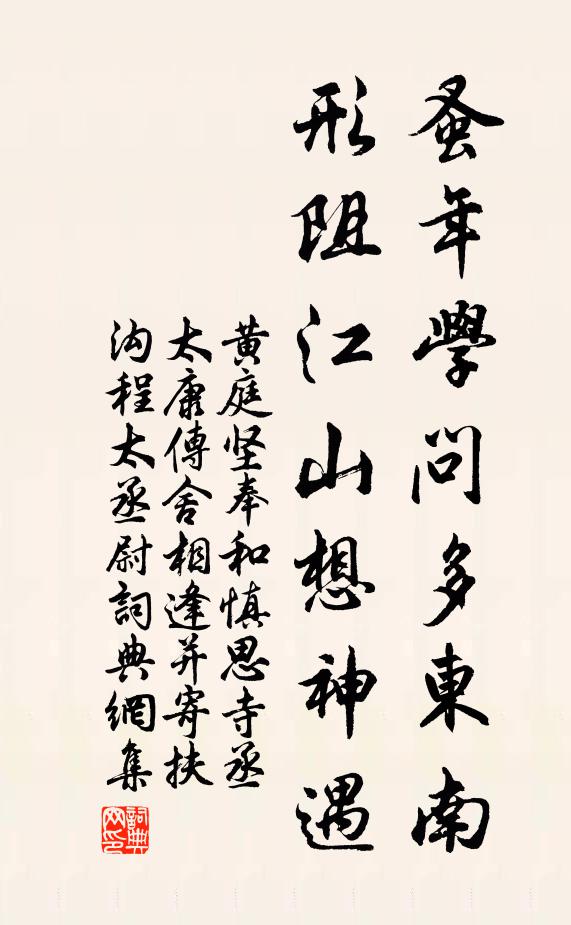 蚤年學問多東南
形阻江山想神遇
黄庭坚奉和慎思寺丞
太康傳舍相逢并寄扶
沟程太丞尉詞典網集
詞典
网印